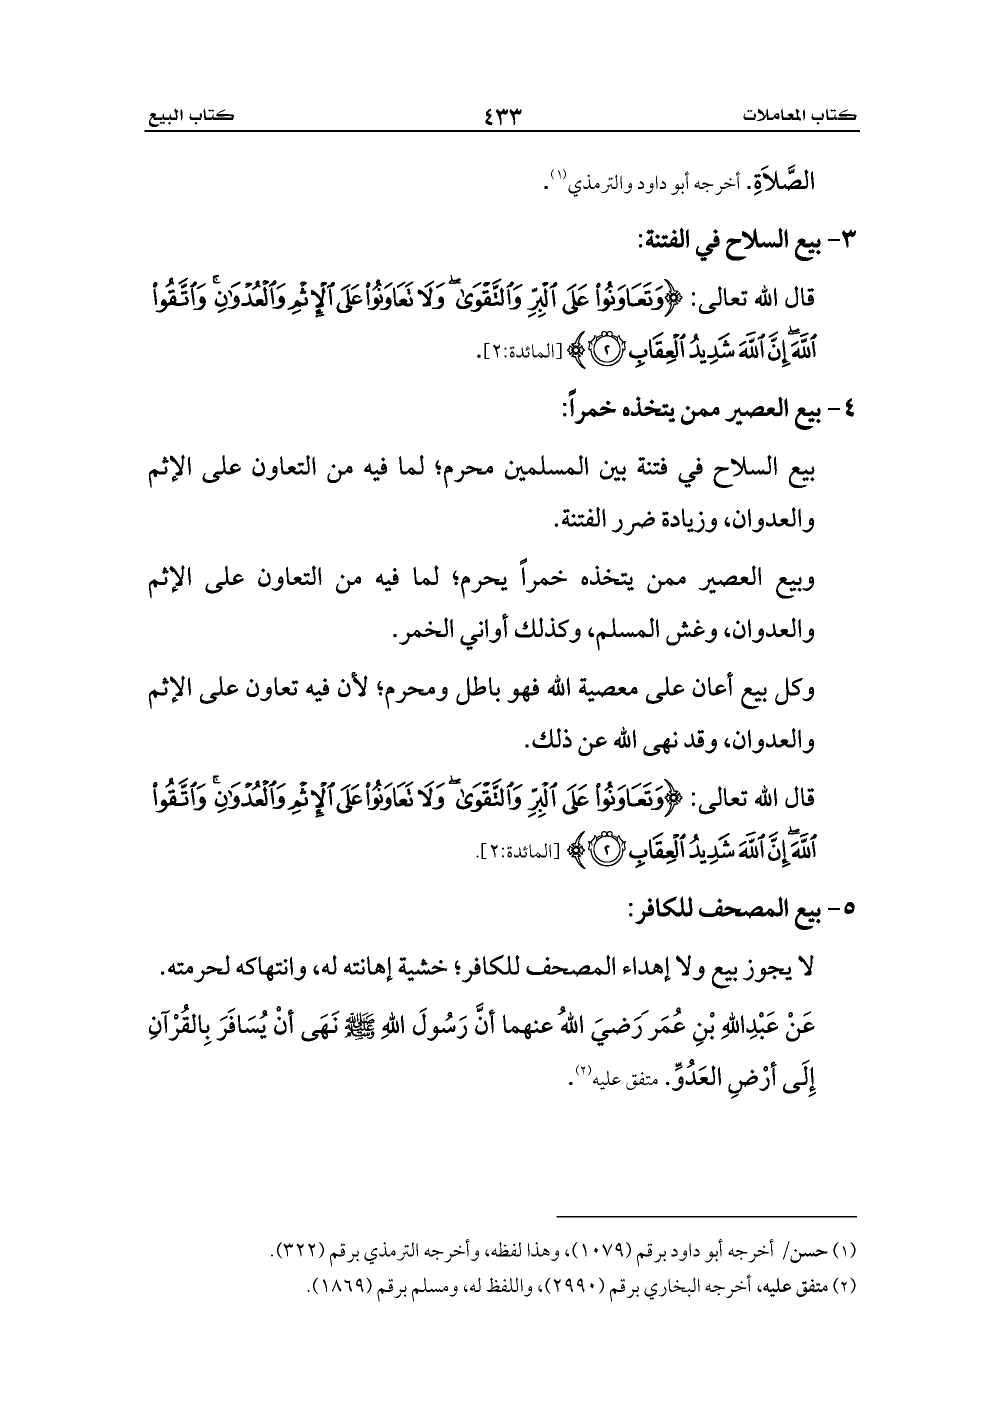 كتاب المعاملات ٤٣٣ كتاب البيع
الصَّلاَةِ. أخرجه أبو داود والترمذي(١).
٣- بيع السلاح في الفتنة:
قال الله تعالى: ﴿وَتَعَاوَنُوا۟ عَلَى ٱلْبِرِّ وَٱلتَّقْوَىٰ ۖ وَلَا تَعَاوَنُوا۟ عَلَى ٱلْإِثْمِ وَٱلْعُدْوَٰنِ ۚ وَٱتَّقُوا۟
ٱللَّهَ ۖ إِنَّ ٱللَّهَ شَدِيدُ ٱلْعِقَابِ ٢﴾ [المائدة:٢].
٤- بيع العصير ممن يتخذه خمراً:
بيع السلاح في فتنة بين المسلمين محرم؛ لما فيه من التعاون على الإثم
والعدوان، وزيادة ضرر الفتنة.
وبيع العصير ممن يتخذه خمراً يحرم؛ لما فيه من التعاون على الإثم
والعدوان، وغش المسلم، وكذلك أواني الخمر.
وكل بيع أعان على معصية الله فهو باطل ومحرم؛ لأن فيه تعاون على الإثم
والعدوان، وقد نهى الله عن ذلك.
قال الله تعالى: ﴿وَتَعَاوَنُوا۟ عَلَى ٱلْبِرِّ وَٱلتَّقْوَىٰ ۖ وَلَا تَعَاوَنُوا۟ عَلَى ٱلْإِثْمِ وَٱلْعُدْوَٰنِ ۚ وَٱتَّقُوا۟
ٱللَّهَ ۖ إِنَّ ٱللَّهَ شَدِيدُ ٱلْعِقَابِ ٢﴾ [المائدة:٢].
٥- بيع المصحف للكافر:
لا يجوز بيع ولا إهداء المصحف للكافر؛ خشية إهانته له، وانتهاكه لحرمته.
عَنْ عَبْدِاللهِ بْنِ عُمَر رَضيَ اللهُ عنهما أنَّ رَسُولَ اللهِ ﷺ نَهَى أنْ يُسَافَرَ بِالقُرْآنِ
إِلَى أرْضِ العَدُوِّ. متفق عليه(٢).
(١) حسن/ أخرجه أبو داود برقم (١٠٧٩)، وهذا لفظه، وأخرجه الترمذي برقم (٣٢٢).
(٢) متفق عليه، أخرجه البخاري برقم (٢٩٩٠)، واللفظ له، ومسلم برقم (١٨٦٩).